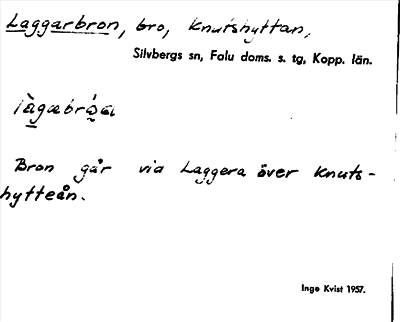 Laggarbron, bro, Knutshyttan,
Silvbergs sn, Falu doms. s. tg, Kopp. län.
Bron går via Laggera över Knuts-
hytteån.
Inge Kvist 1957.